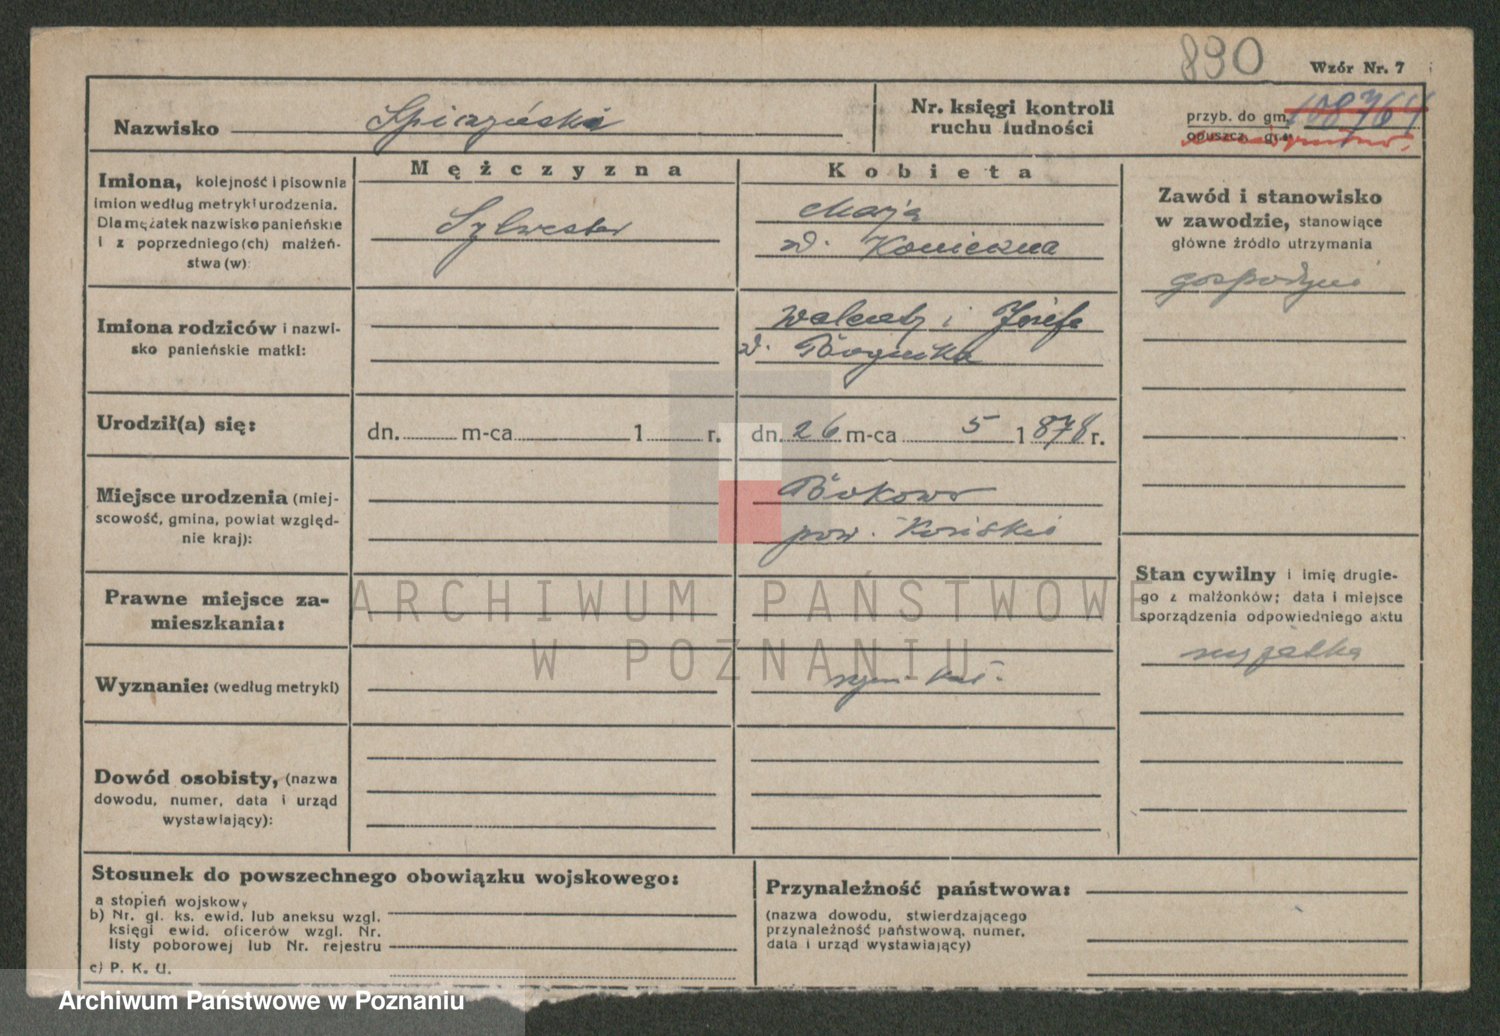 890
Wzór Nr. 7
Nazwisko
Nr. księgi kontroli
ruchu ludności
przyb. do gm.
108764
opuszcz. gm.
Mężczyzna
Kobieta
Imiona, kolejność i pisownia
imion według metryki urodzenia.
Dla mężatek nazwisko panieńskie
i z poprzedniego (ch) małżeń-
stwa (w):
Sylwester
Marja
d. Konieczna
Zawód i stanowisko
w zawodzie, stanowiące
główne źródło utrzymania
gospodyni
Imiona rodziców i nazwi-
sko panieńskie matki:
Walenty i Józefa
d.
Urodził(a) się:
dn. m-ca 1 r.
dn. 26 m-ca 5 1878 r.
Miejsce urodzenia (miej-
scowość, gmina, powiat względ-
nie kraj):
pow. Koński
Prawne miejsce za-
mieszkania:
Stan cywilny i imię drugie-
go z małżonków; data i miejsce
sporządzenia odpowiedniego aktu
mężatka
Wyznanie: (według metryki)
rzym. kat.
Dowód osobisty, (nazwa
dowodu, numer, data i urząd
wystawiający):
Stosunek do powszechnego obowiązku wojskowego:
a stopień wojskowy
b) Nr. gl. ks. ewid. lub aneksu wzgl.
księgi ewid. oficerów wzgl. Nr.
listy poborowej lub Nr. rejestru
c) P. K. U.
Przynależność państwowa:
(nazwa dowodu, stwierdzającego
przynależność państwową, numer,
data i urząd wystawiający)
ARCHIWUM PAŃSTWOWE
W POZNANIU
Archiwum Państwowe w Poznaniu